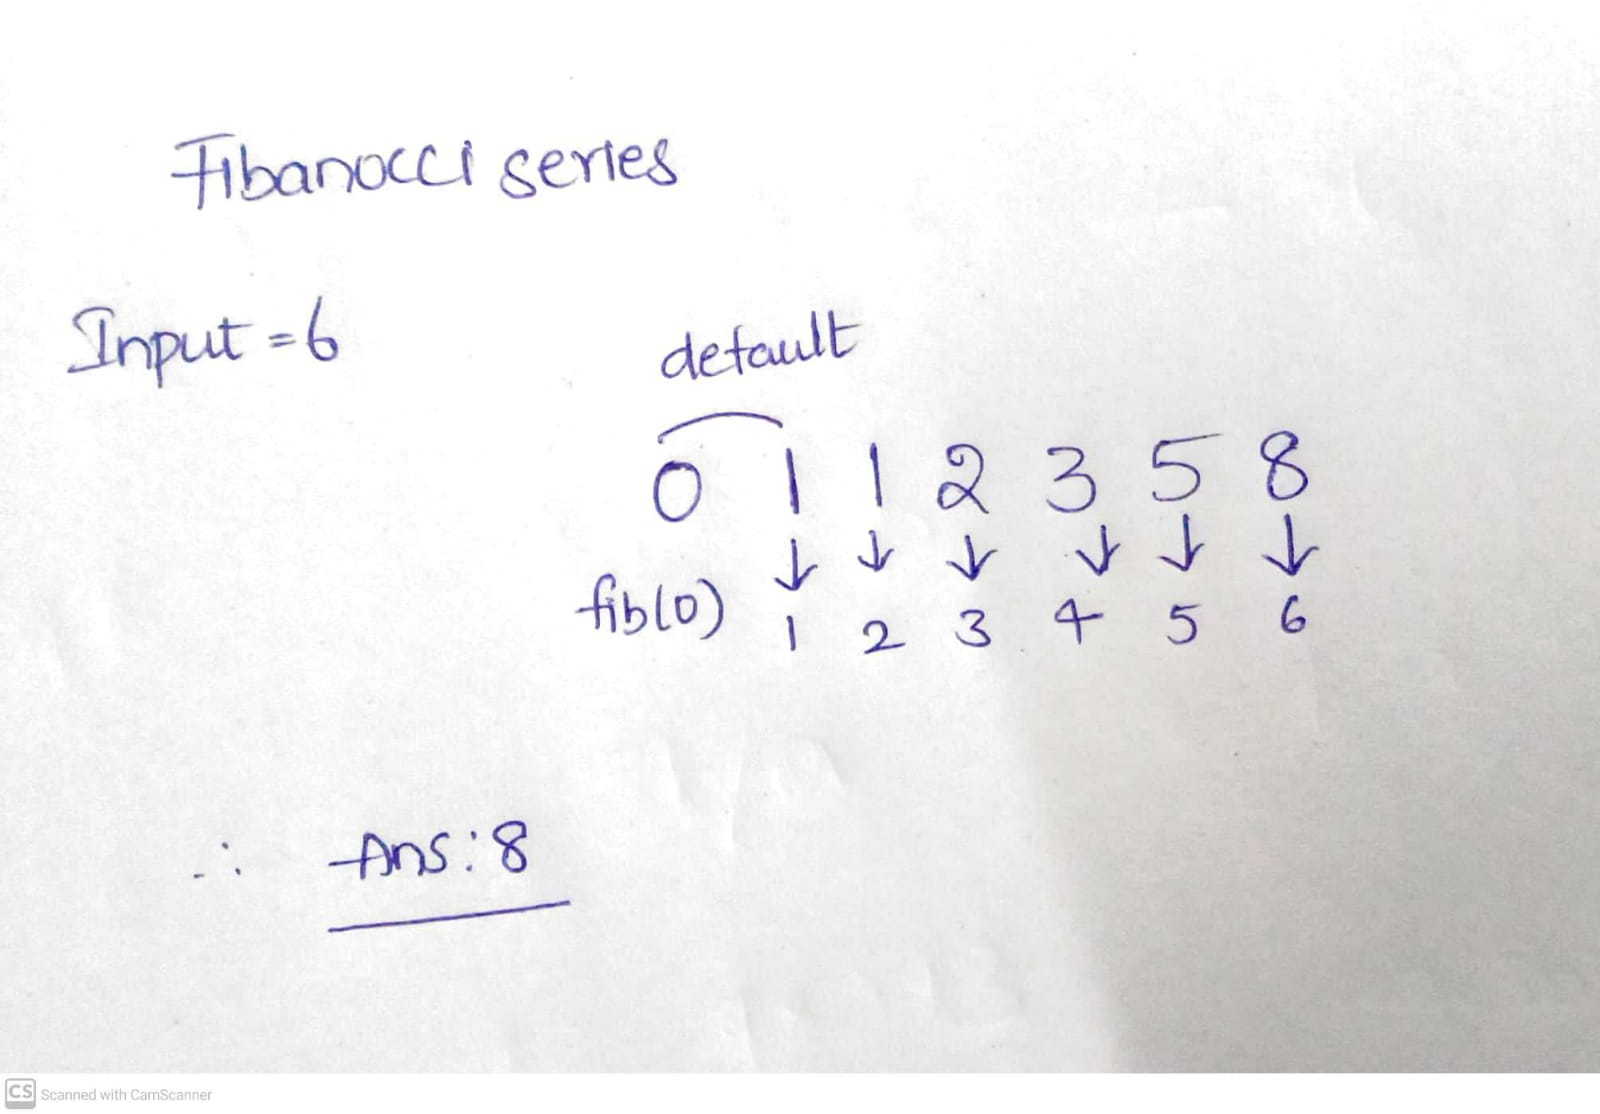 Fibanocci series
Input = 6
default
0 1 1 2 3 5 8
↓ ↓ ↓ ↓ ↓ ↓
fib(0) 1 2 3 4 5 6
∴ Ans: 8
CS Scanned with CamScanner